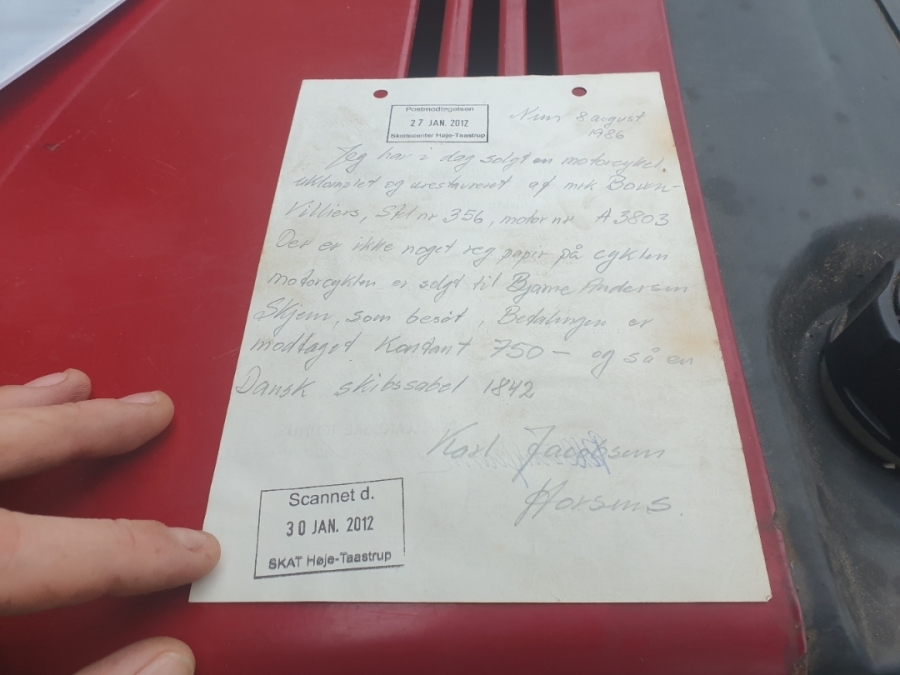 Postmodtagelsen
27 JAN. 2012
Skattecenter Høje-Taastrup
8 august
1986
Jeg har i dag solgt en motorcykel,
uklomplet og urestaureret af mrk
Villiers, Stl nr 356, motor nr A3803
Der er ikke noget reg. papir på cyklen
motorcyklen er solgt til Bjarne Andersen
Skjern, som besöt, Betalingen er
modtaget Kontant 750- og så en
Dansk skibssabel 1842
Karl Jacobsen
Horsens.
Scannet d.
30 JAN. 2012
SKAT Høje-Taastrup